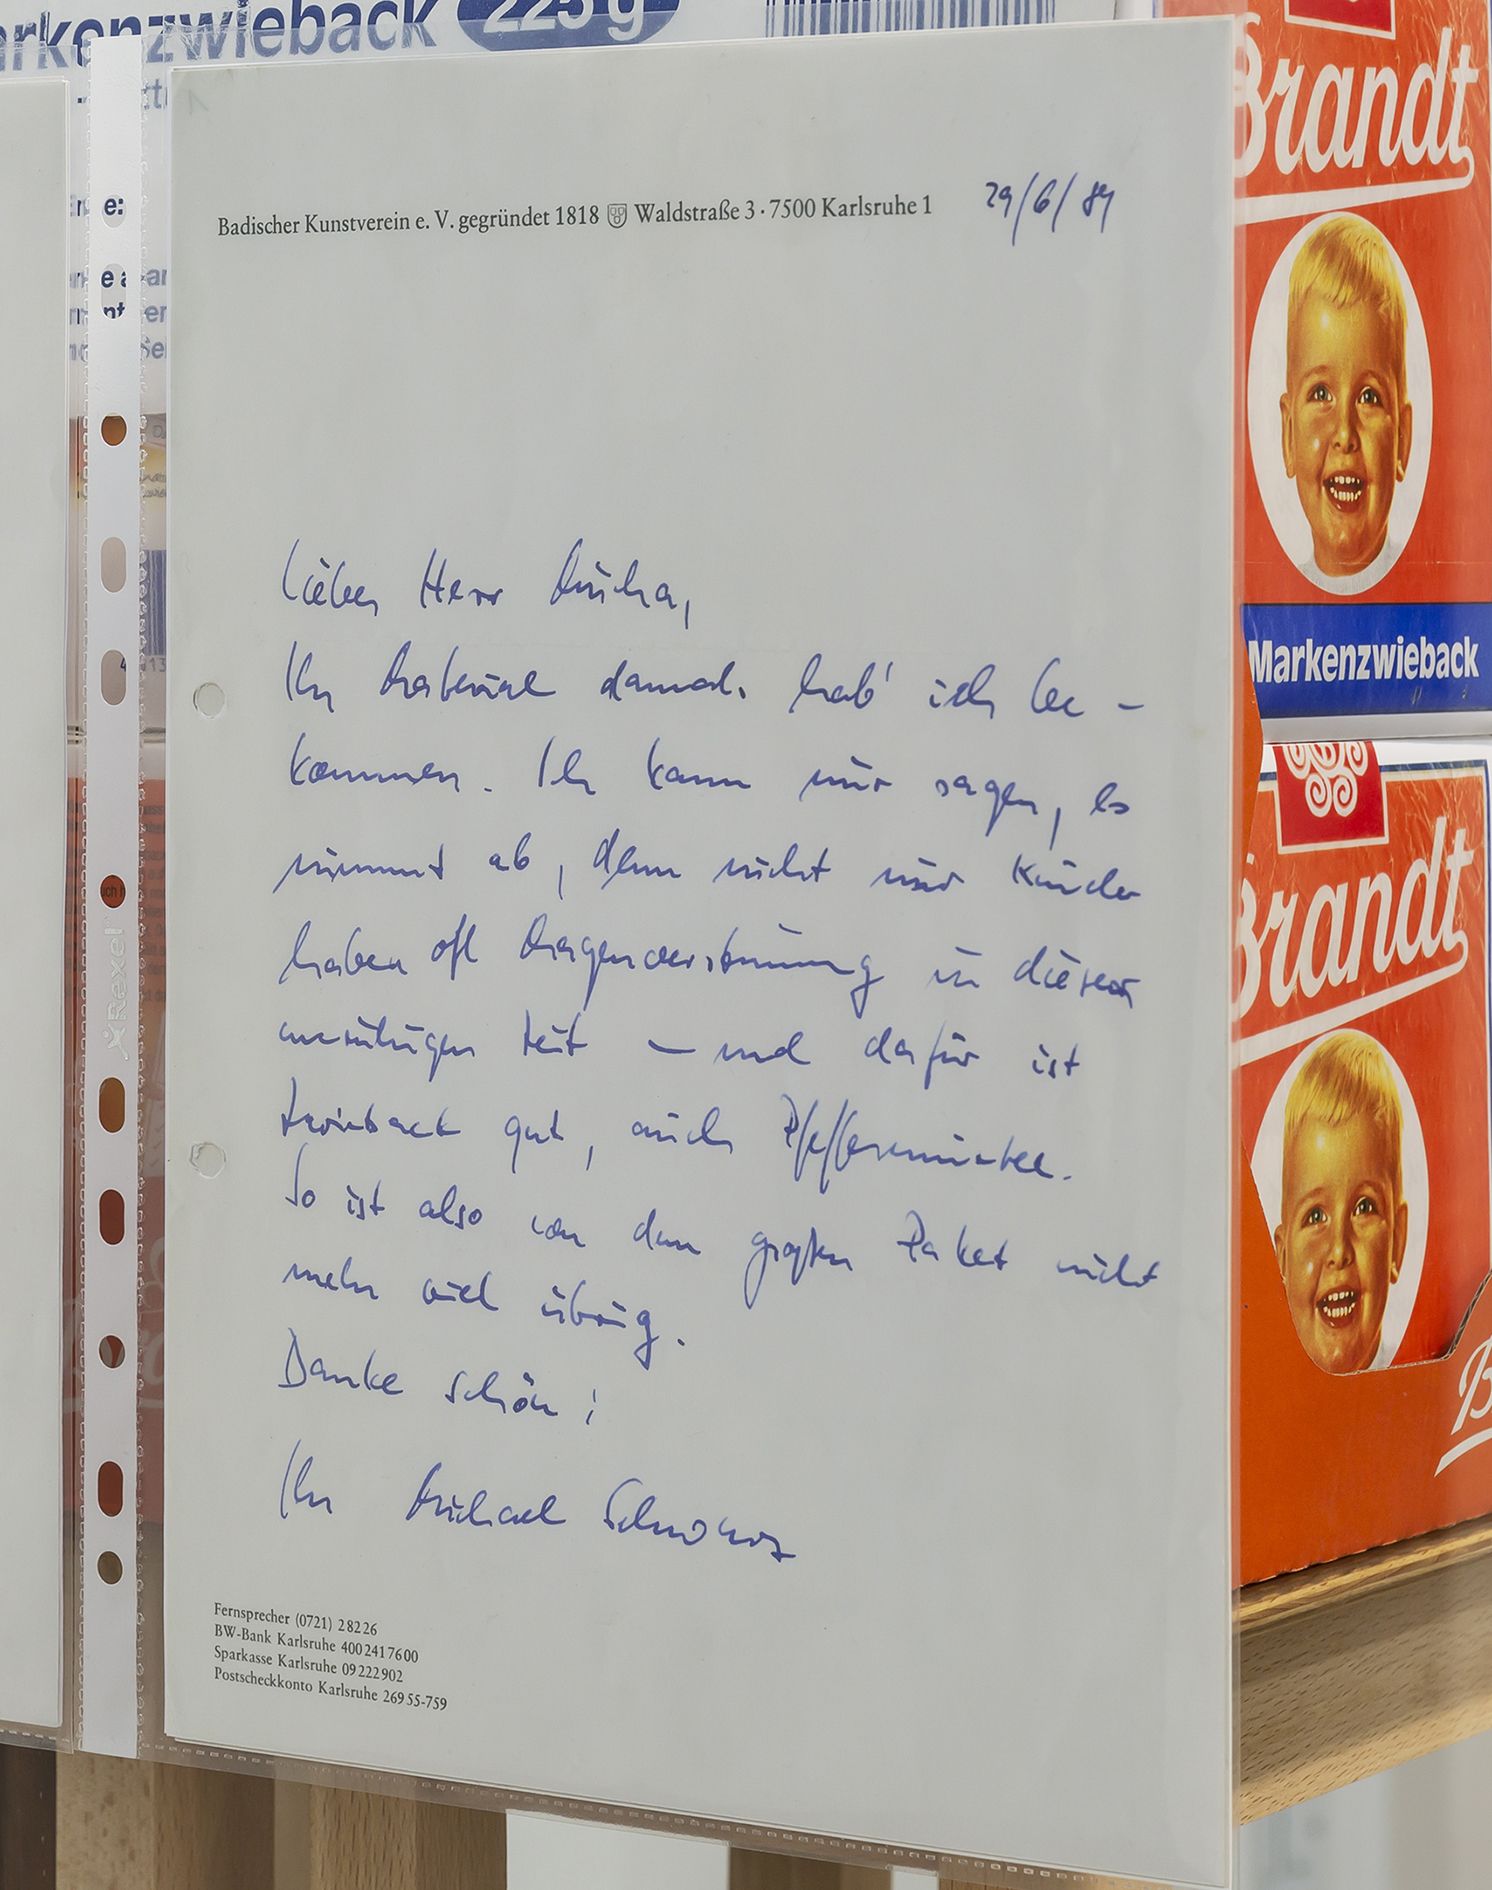 rkenzwieback 225 g
Badischer Kunstverein e. V. gegründet 1818 Waldstraße 3 · 7500 Karlsruhe 1
29/6/84
Lieber Herr Mucha,
Ihr Material damals hab' ich be-
kommen. Ich kann nur sagen, es
nimmt ab, denn nicht nur Kinder
haben oft Magenverstimmung in dieser
unruhigen Zeit – und dafür ist
Zwieback gut, auch Pfefferminztee.
So ist also von dem großen Paket nicht
mehr viel übrig.
Danke schön!
Ihr Michael Schwarz
Fernsprecher (0721) 28226
BW-Bank Karlsruhe 4002417600
Sparkasse Karlsruhe 09222902
Postscheckkonto Karlsruhe 26955-759
Rexel
Brandt
Markenzwieback
Brandt